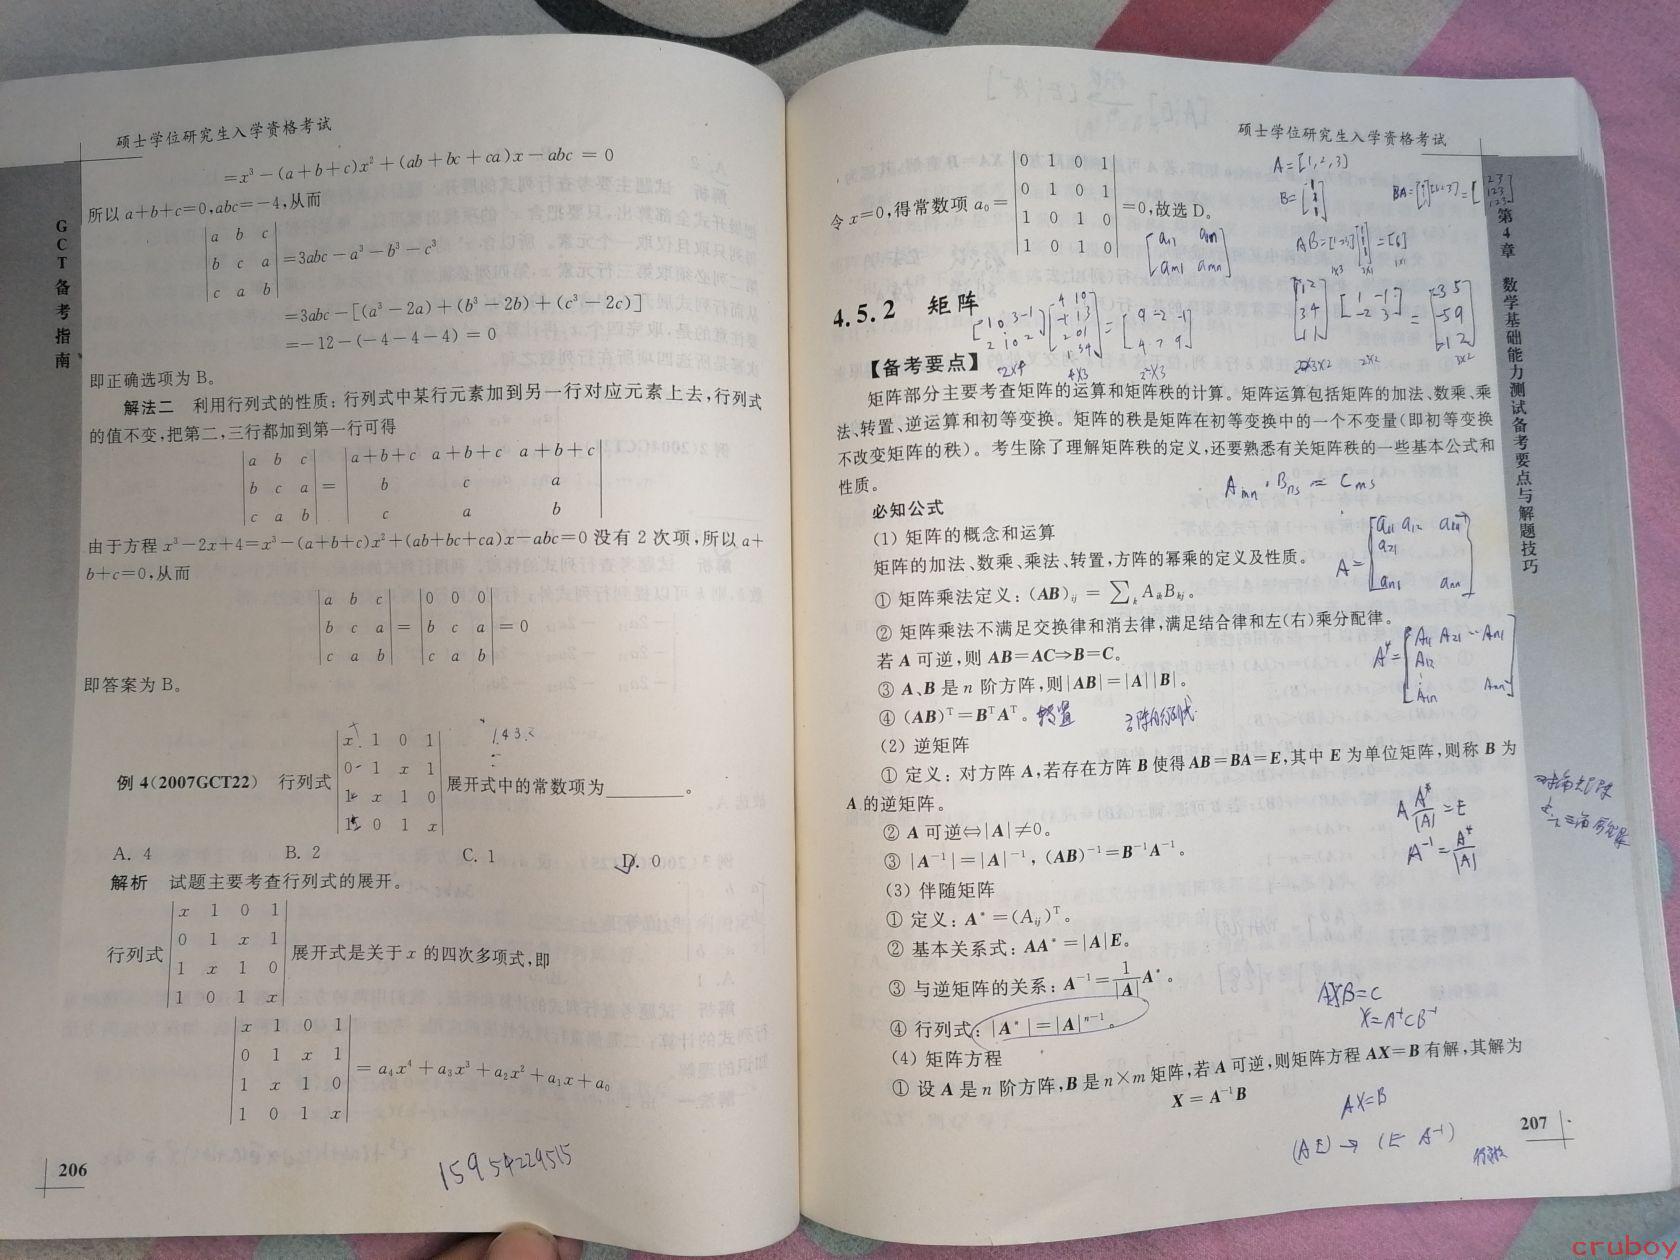 硕士学位研究生入学资格考试
GCT备考指南
=x³-(a+b+c)x²+(ab+bc+ca)x-abc = 0
所以a+b+c=0,abc=-4,从而
|a b c|
|b c a| =3abc-a³-b³-c³
|c a b|
=3abc-[(a³-2a)+(b³-2b)+(c³-2c)]
=-12-(-4-4-4) = 0
即正确选项为 B。
解法二 利用行列式的性质:行列式中某行元素加到另一行对应元素上去,行列式
的值不变,把第二,三行都加到第一行可得
|a b c| |a+b+c a+b+c a+b+c|
|b c a| = |b c a|
|c a b| |c a b|
由于方程 x³-2x+4=x³-(a+b+c)x²+(ab+bc+ca)x-abc=0 没有 2 次项,所以 a+
b+c=0,从而
|a b c| |0 0 0|
|b c a| = |b c a| =0
|c a b| |c a b|
即答案为 B。
1432
|x 1 0 1|
例 4(2007GCT22) 行列式 |0 1 x 1| 展开式中的常数项为________。
|1 x 1 0|
|1 0 1 x|
A. 4 B. 2 C. 1 D. 0
解析 试题主要考查行列式的展开。
|x 1 0 1|
行列式 |0 1 x 1| 展开式是关于 x 的四次多项式,即
|1 x 1 0|
|1 0 1 x|
|x 1 0 1|
|0 1 x 1| = a₄x⁴+a₃x³+a₂x²+a₁x+a₀
|1 x 1 0|
|1 0 1 x|
206
15954229515
硕士学位研究生入学资格考试
第4章 数学基础能力测试备考要点与解题技巧
|0 1 0 1|
|0 1 0 1|
令 x=0,得常数项 a₀= |1 0 1 0| =0,故选 D。
|1 0 1 0|
A=[1,2,3]
B=
BA=
AB= =[6]
1x3 3x1 1x1
[a11 a1n
am1 amn]
4.5.2 矩阵
[1 0 3 -1
2 1 0 2]
[4 1 0
-1 1 3
2 0 1
1 3 4]
= [9 -2 -1
4 7 9]
2x4 4x3 2x3
[1 2
3 4
1 1]
[1 -1
-2 3]
= [-3 5
-5 9
-1 2]
3x2 2x2 3x2
【备考要点】
矩阵部分主要考查矩阵的运算和矩阵秩的计算。矩阵运算包括矩阵的加法、数乘、乘
法、转置、逆运算和初等变换。矩阵的秩是矩阵在初等变换中的一个不变量(即初等变换
不改变矩阵的秩)。考生除了理解矩阵秩的定义,还要熟悉有关矩阵秩的一些基本公式和
性质。
Amn·Bns = Cms
必知公式
(1) 矩阵的概念和运算
矩阵的加法、数乘、乘法、转置,方阵的幂乘的定义及性质。
A= [a11 a12 a1n
a21
an1 ann]
① 矩阵乘法定义:(AB)ᵢⱼ = ∑ₖ AᵢₖBₖⱼ。
② 矩阵乘法不满足交换律和消去律,满足结合律和左(右)乘分配律。
若 A 可逆,则 AB=AC⇒B=C。
A*= [A11 A21 ··· An1
A12
⋮
A1n Ann]
③ A、B 是 n 阶方阵,则|AB|=|A||B|。
④ (AB)ᵀ=BᵀAᵀ。 转置
(2) 逆矩阵
① 定义:对方阵 A,若存在方阵 B 使得 AB=BA=E,其中 E 为单位矩阵,则称 B 为
A 的逆矩阵。
A A*/|A| =E
② A 可逆⇔|A|≠0。
A⁻¹= A*/|A|
③ |A⁻¹|=|A|⁻¹,(AB)⁻¹=B⁻¹A⁻¹。
(3) 伴随矩阵
① 定义:A*=(Aᵢⱼ)ᵀ。
② 基本关系式:AA*=|A|E。
③ 与逆矩阵的关系:A⁻¹=1/|A| A*。
④ 行列式:|A*|=|A|ⁿ⁻¹。
AXB=C
X=A⁻¹CB⁻¹
(4) 矩阵方程
① 设 A 是 n 阶方阵,B 是 n×m 矩阵,若 A 可逆,则矩阵方程 AX=B 有解,其解为
X = A⁻¹B
AX=B
(A E) → (E A⁻¹)
207
cruboy